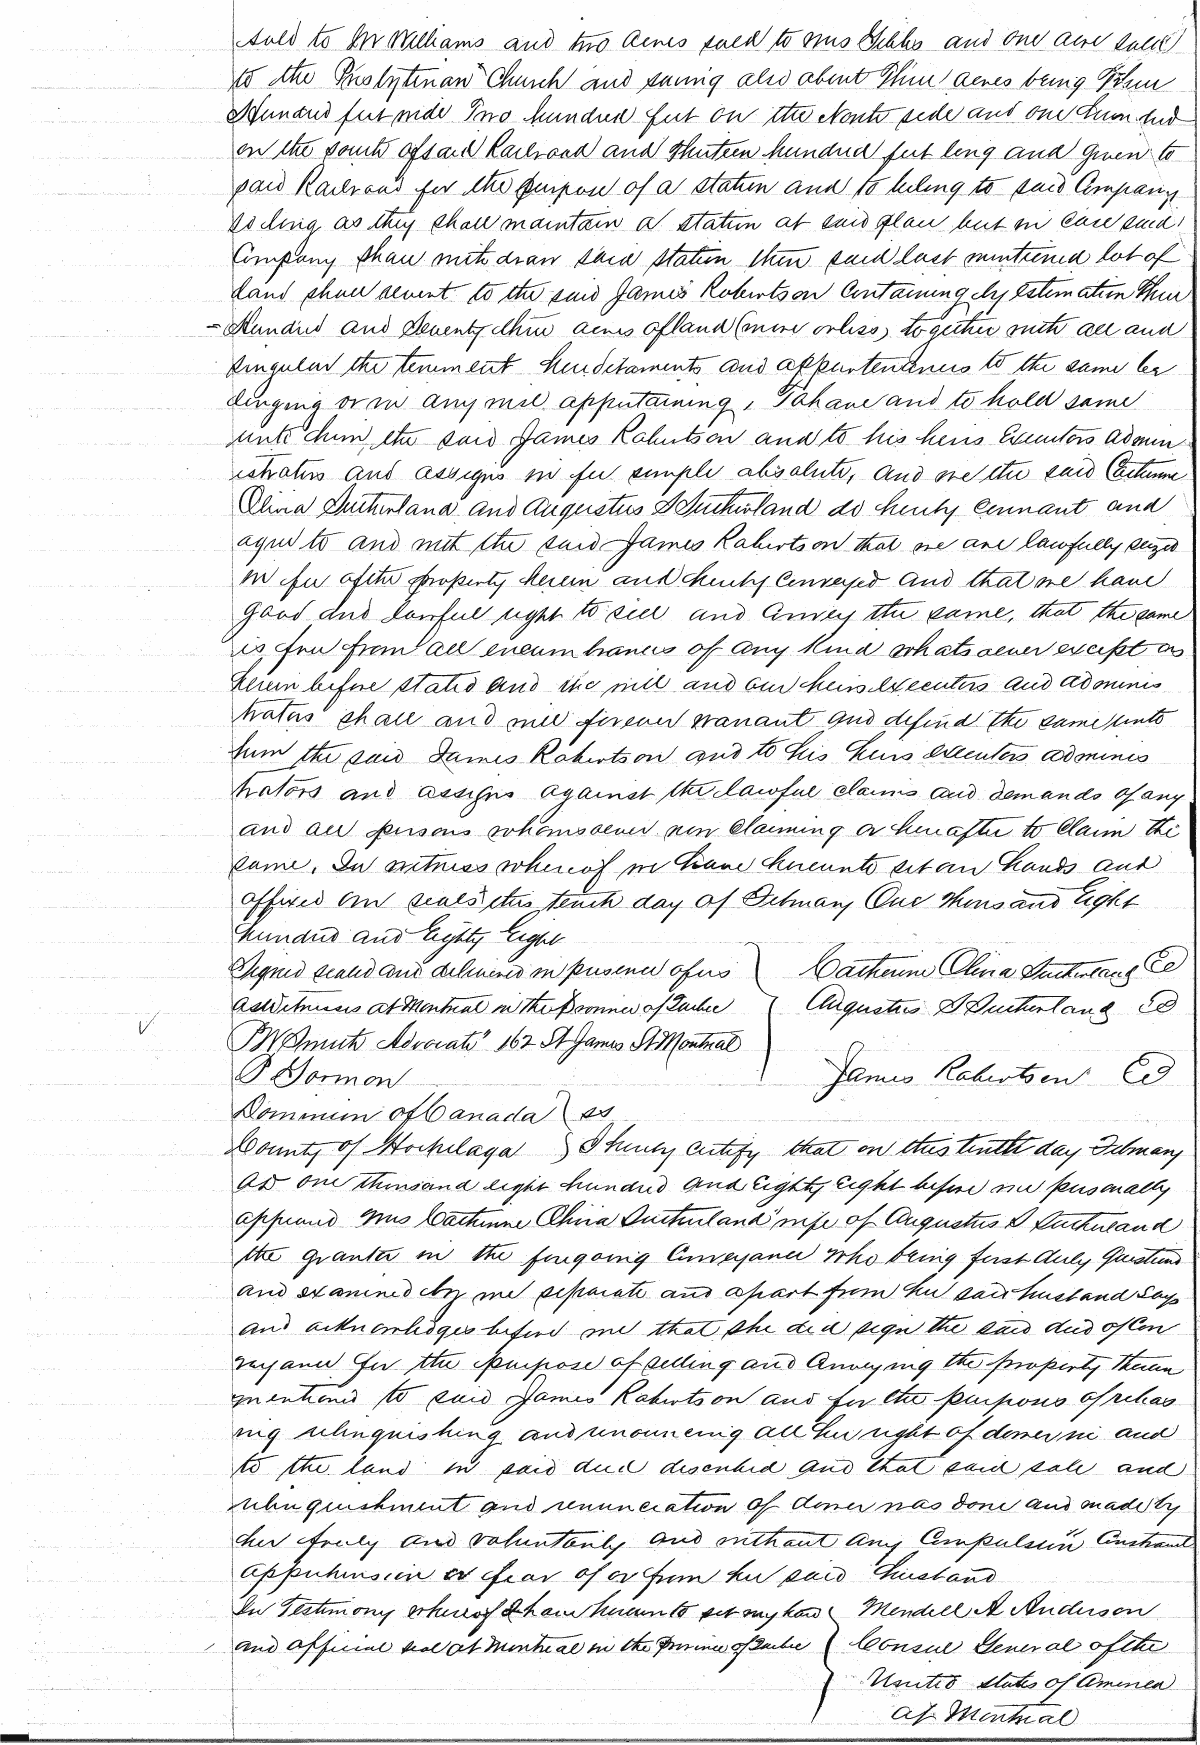 sold to Mr Williams and two acres sold to Mrs Gibbs and one acre sold
to the Presbyterian Church and saving also about Three acres being Three
Hundred feet wide Two hundred feet on the North side and one hundred
on the south of said Railroad and Thirteen hundred feet long and given to
said Railroad for the purpose of a station and to belong to said Company
so long as they shall maintain a station at said place but in case said
Company shall withdraw said station then said last mentioned lot of
land shall revert to the said James Robertson Containing by estimation Three
- Hundred and Seventy three acres of land (more or less) together with all and
singular the tenement hereditaments and appurtenances to the same be
longing or in any wise appertaining, To have and to hold same
unto him, the said James Robertson and to his heirs Executors admin
istrators and assigns in fee simple absolute, and we the said Catherine
Olivia Sutherland and Augustus S Sutherland do hereby Covenant and
agree to and with the said James Robertson that we are lawfully seized
in fee of the property herein and hereby Conveyed and that we have
good and lawful right to sell and Convey the same, that the same
is free from all encumbrances of any kind whatsoever except as
herein before stated and we will and our heirs executors and adminis
trators shall and will forever warrant and defend the same unto
him the said James Robertson and to his heirs executors adminis
trators and assigns against the lawful claims and demands of any
and all persons whomsoever now claiming or hereafter to claim the
same. In witness whereof we have hereunto set our hands and
affixed our seals this tenth day of February One thousand Eight
hundred and Eighty Eight
Signed sealed and delivered in presence of us } Catherine Olivia Sutherland
as Witnesses at Montreal in the Province of Quebec Augustus S Sutherland
Smith Advocate 162 St James St Montreal
P Gormon James Robertson
Dominion of Canada } ss
County of Hochelaga } I hereby certify that on this tenth day February
AD one thousand eight hundred and Eighty Eight before me personally
appeared Mrs Catherine Olivia Sutherland wife of Augustus S Sutherland
the grantor in the foregoing Conveyance who being first duly Questioned
and examined by me separate and apart from her said husband Says
and acknowledges before me that she did sign the said deed of Con
veyance for the purpose of selling and Conveying the property therein
mentioned to said James Robertson and for the purposes of releas
ing relinquishing and renouncing all her right of dower in and
to the land in said deed described and that said sale and
relinquishment and renunciation of dower was done and made by
her freely and voluntarily and without any Compulsion Constraint
apprehension or fear of or from her said husband
In Testimony whereof I have hereunto set my hand } Wendell A Anderson
and official seal at Montreal in the Province of Quebec } Consul General of the
United States of America
at Montreal